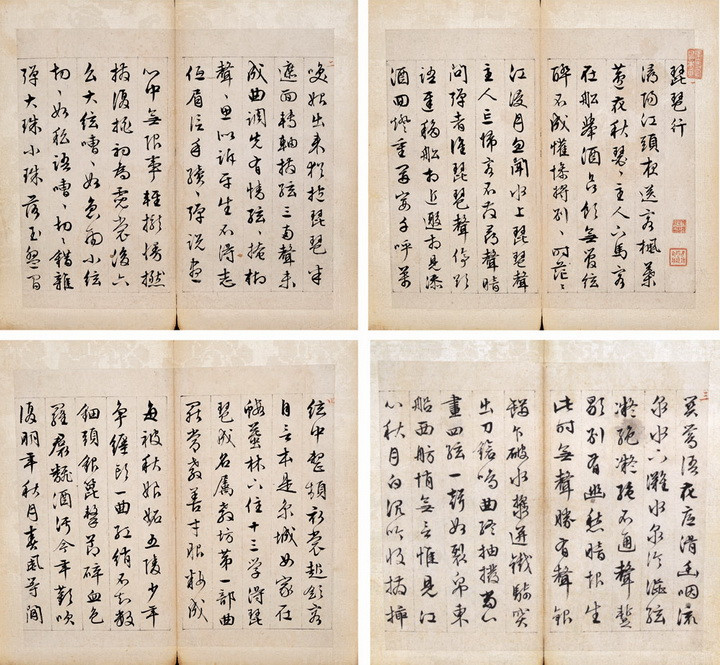 琵琶行
潯陽江頭夜送客楓葉
荻花秋瑟、主人下馬客
在船舉酒欲飲無管絃
醉不成懽慘將別、時茫、
江浸月忽聞水上琵琶聲
主人忘歸客不發尋聲暗
問彈者誰琵琶聲停欲
語遲移船相近邀相見添
酒回燈重開宴千呼萬
喚始出來猶抱琵琶半
遮面轉軸撥絃三兩聲未
成曲調先有情絃、掩抑
聲、思似訴平生不得志
低眉信手續、彈說盡
心中無限事輕攏慢撚
撥復挑初為霓裳後六
么大絃嘈、如急雨小絃
切、如私語嘈、切、錯雜
彈大珠小珠落玉盤間
關鶯語花底滑幽咽流
泉水下灘水泉冷澀絃
凝絕凝絕不通聲暫
歇別有幽愁暗恨生
此時無聲勝有聲銀
缾乍破水漿迸鐵騎突
出刀鎗鳴曲終抽撥當心
畫四絃一聲如裂帛東
船西舫悄無言惟見江
心秋月白沉吟收撥插
絃中整頓衣裳起斂容
自言本是京城女家在
蝦蟇陵下住十三學得琵
琶成名屬教坊第一部曲
罷常教善才服粧成
每被秋娘妬五陵少年
爭纏頭一曲紅綃不知數
鈿頭銀篦擊節碎血色
羅裙翻酒污今年歡笑
復明年秋月春風等閒